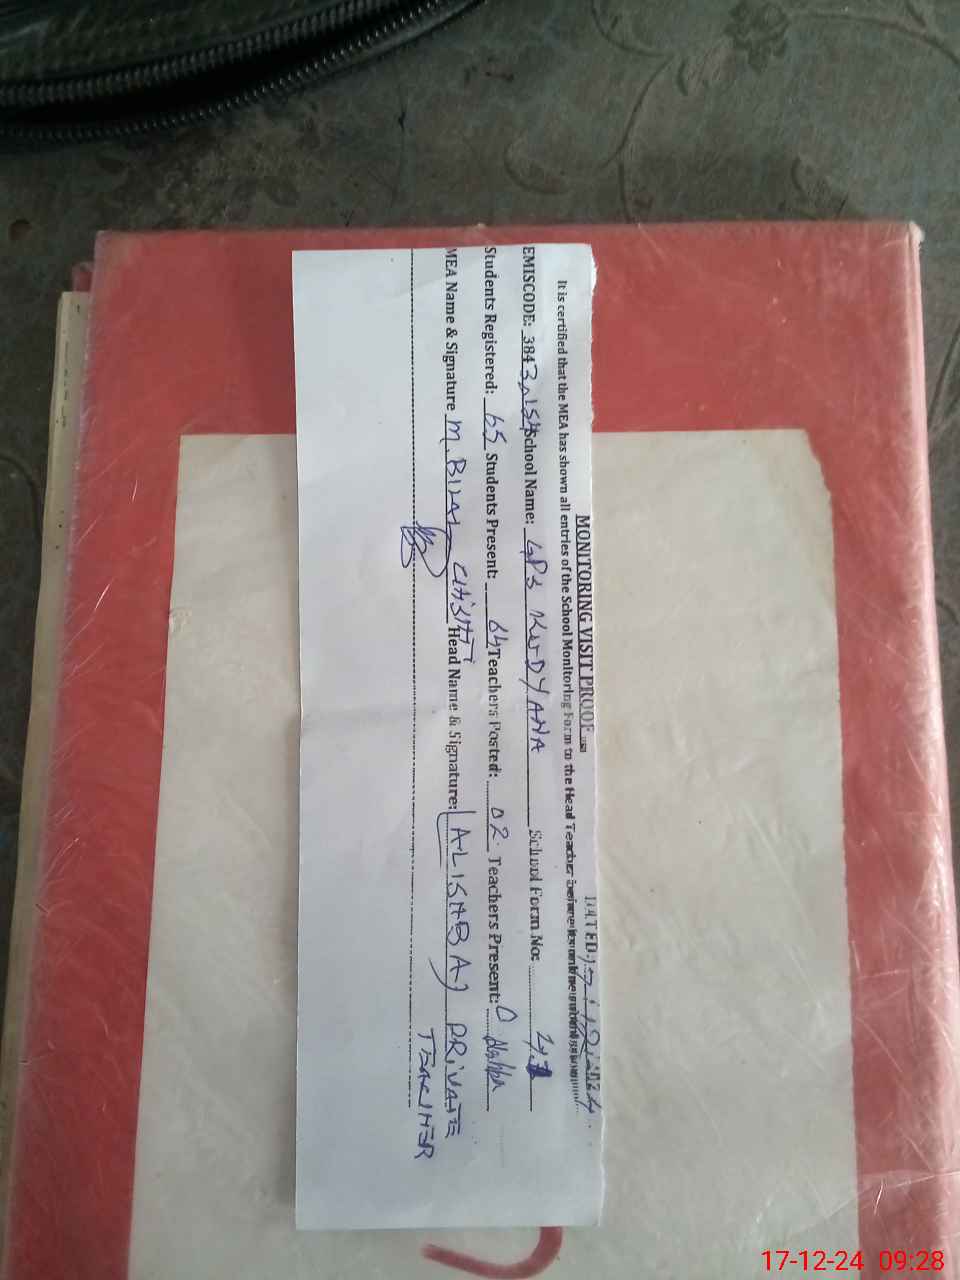 MONITORING VISIT PROOF
DATED:
It is certified that the MEA has shown all entries of the School Monitoring Form to the Head Teacher before
EMISCODE: 3843 School Name: GPS KUDYANA School Form No:
Students Registered: 65 Students Present: 64 Teachers Posted: 02 Teachers Present: 0
MEA Name & Signature M. BILAL CHISHTI Head Name & Signature: (ALISHBA) PRIVATE
TEACHER
17-12-24 09:28